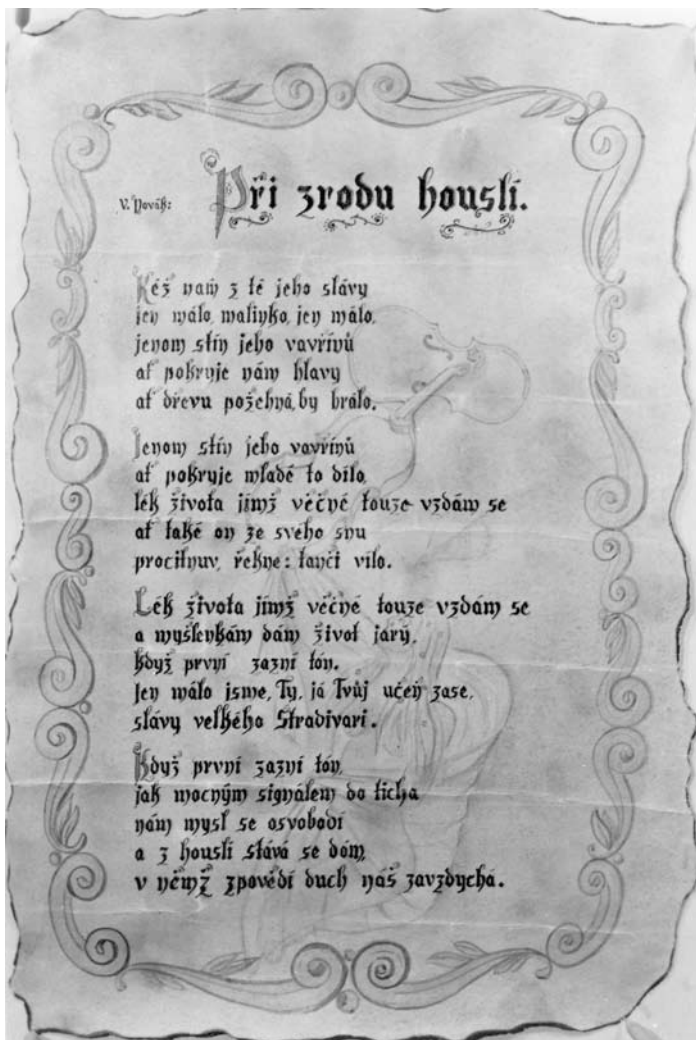 V. Novák:
Při zrodu houslí.
Kéž nam z té jeho slávy
jen málo, malinko, jen málo,
jenom stín jeho vavřínů
ať pokryje nám hlavy
ať dřevu požehná, by hrálo.
Jenom stín jeho vavřínů
ať pokryje mladé to dílo,
lék života jímž věčné touze vzdám se
ať také on ze svého snu
procitnuv, řekne: tančí vílo.
Lék života jímž věčné touze vzdám se
a myšlenkám dám život jarý,
Když první zazní tón.
Jen málo jsme, Ty, já Tvůj učeň zase,
slávy velkého Stradivari.
Když první zazní tón,
jak mocným signálem do ticha
nám mysl se osvobodí
a z houslí stává se dóm,
v němž zpovědí duch náš zavzdychá.